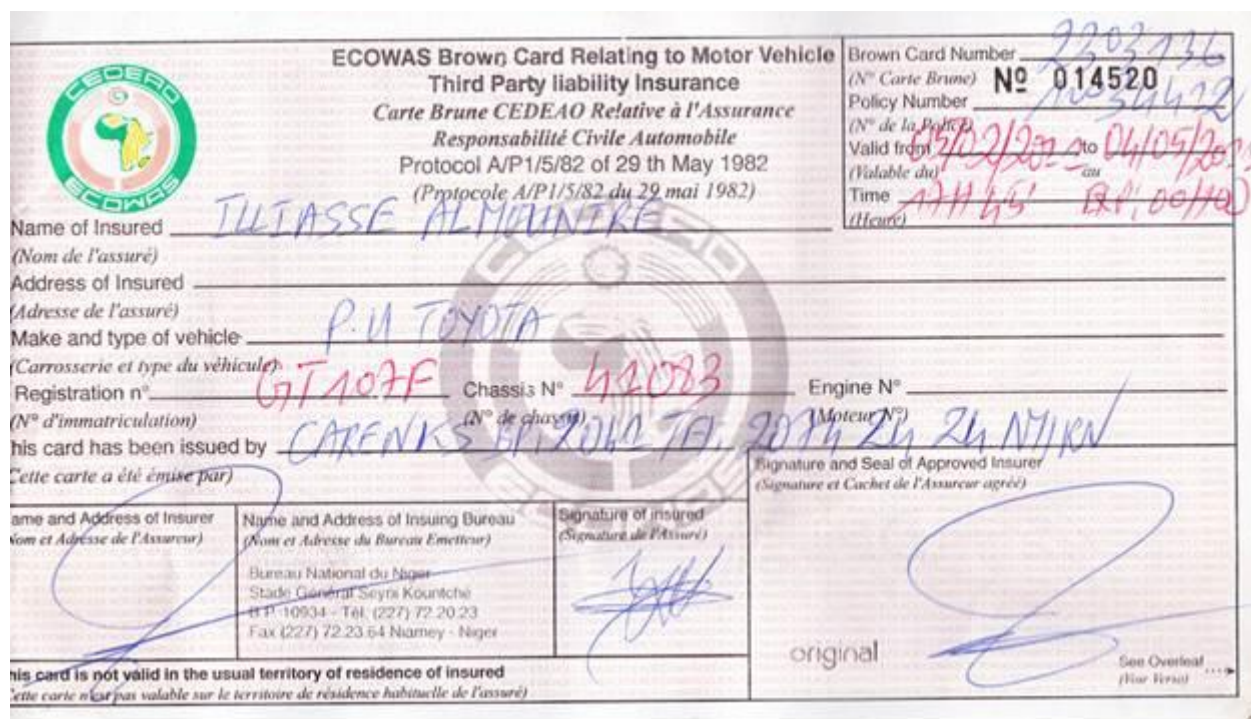 CEDEAO
ECOWAS
ECOWAS Brown Card Relating to Motor Vehicle
Third Party liability Insurance
Carte Brune CEDEAO Relative à l'Assurance
Responsabilité Civile Automobile
Protocol A/P1/5/82 of 29 th May 1982
(Protocole A/P1/5/82 du 29 mai 1982)
Brown Card Number 2203136
(N° Carte Brune) Nº 014520
Policy Number
(N° de la Police)
Valid from 05/02/2021 to 04/05/2021
(Valable du) au
Time 17H 45
(Heure)
Name of Insured ILLIASSE ALMOUNIRE
(Nom de l'assuré)
Address of Insured
(Adresse de l'assuré)
Make and type of vehicle P.U TOYOTA
(Carrosserie et type du véhicule)
Registration n° GT107F Chassis N° 41083 Engine N°
(N° d'immatriculation) (N° de chassis) (Moteur N°)
his card has been issued by BP TEL 2074 24 24
Cette carte a été émise par)
Signature and Seal of Approved Insurer
(Signature et Cachet de l'Assureur agréé)
ame and Address of Insurer
Nom et Adresse de l'Assureur)
Name and Address of Insuing Bureau
(Nom et Adresse du Bureau Emetteur)
Bureau National du Niger
Stade Général Seyni Kountché
B.P. 10934 - Tél. (227) 72.20.23
Fax (227) 72.23.64 Niamey - Niger
Signature of insured
(Signature de l'Assuré)
original
See Overleaf
(Voir Verso)
his card is not valid in the usual territory of residence of insured
Cette carte n'est pas valable sur le territoire de résidence habituelle de l'assuré)